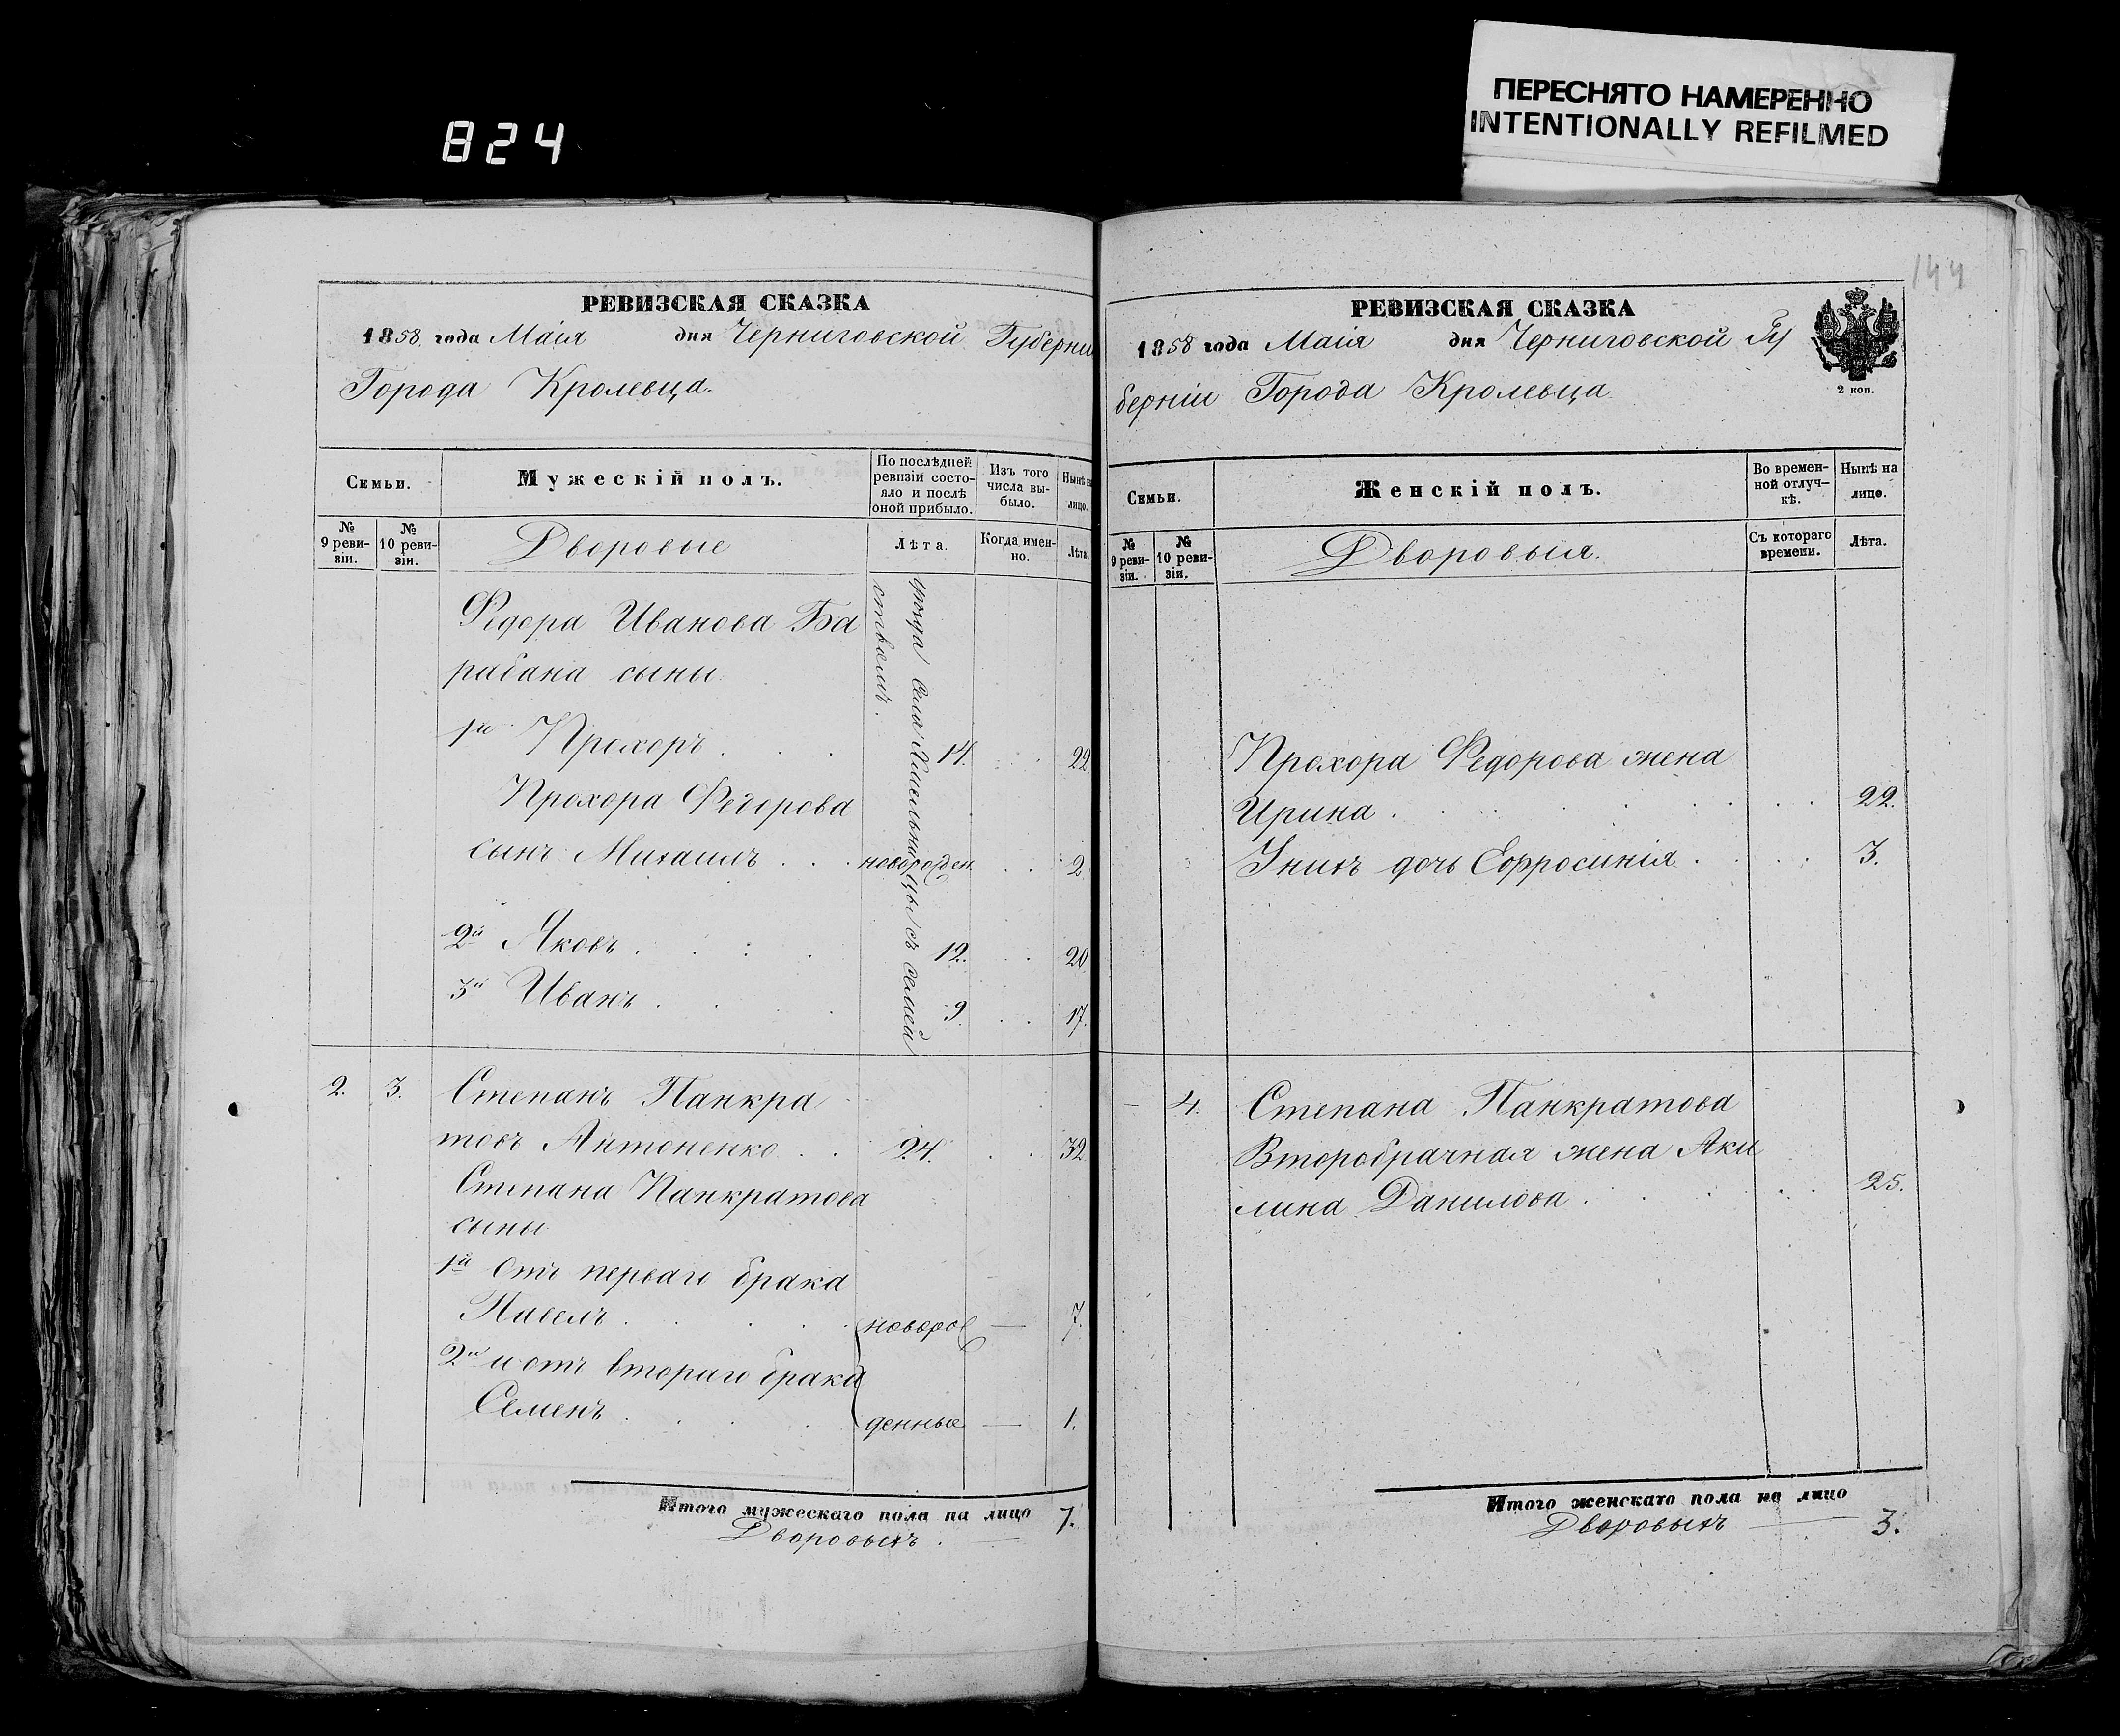 824
ПЕРЕСНЯТО НАМЕРЕННО
INTENTIONALLY REFILMED
РЕВИЗСКАЯ СКАЗКА
1858. года Маія дня Черниговской Губерни
Города Кролевца.
Семьи.
Мужескій полъ.
По послѣдней
ревизіи состо-
яло и послѣ
оной прибыло.
Изъ того
числа вы-
было.
Нынѣ на
лицо.
№
9 реви-
зіи.
№
10 реви-
зіи.
Дворовые
Лѣта.
Когда имен-
но.
Лѣта.
уѣзда села с семей
ствомъ.
Федора Иванова Ба
рабана сыны
1й Прохоръ . . . 14. . . 22
Прохора Федорова
сынъ Михаилъ . . . новорожден. . . 2
2й Яковъ . . . 12. . . 20
3й Иванъ . . . 9. . . 17.
2. 3. Степанъ Панкра
товъ Антоненко . . 24. . . 32
Степана Панкратова
сыны
1й отъ перваго брака
Павелъ . . . . новорож — 7.
2й и отъ втораго брака
Семенъ . . . денные — 1.
Итого мужескаго пола на лицо 7.
Дворовыхъ . —
144
РЕВИЗСКАЯ СКАЗКА
1858 года Маія дня Черниговской Гу
берніи Города Кролевца
2 коп.
Семьи.
Женскій полъ.
Во времен-
ной отлуч-
кѣ.
Нынѣ на
лицо.
№
9 реви-
зіи.
№
10 реви-
зіи.
Дворовыя.
Съ котораго
времени.
Лѣта.
Прохора Федорова жена
Ирина . . . . . . 22.
У нихъ дочь Ефросинія . . . 3.
— 4. Степана Панкратова
Второбрачная жена Аки
лина Данилова . . . . 25.
Итого женскаго пола на лицо
Дворовыхъ — 3.